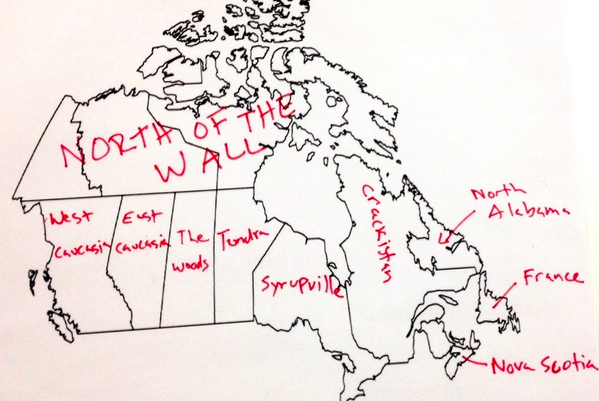 NORTH OF THE
WALL
West
Caucasia
East
Caucasia
The
Woods
Tundra
Syrupville
Crackistan
North
Alabama
France
Nova Scotia